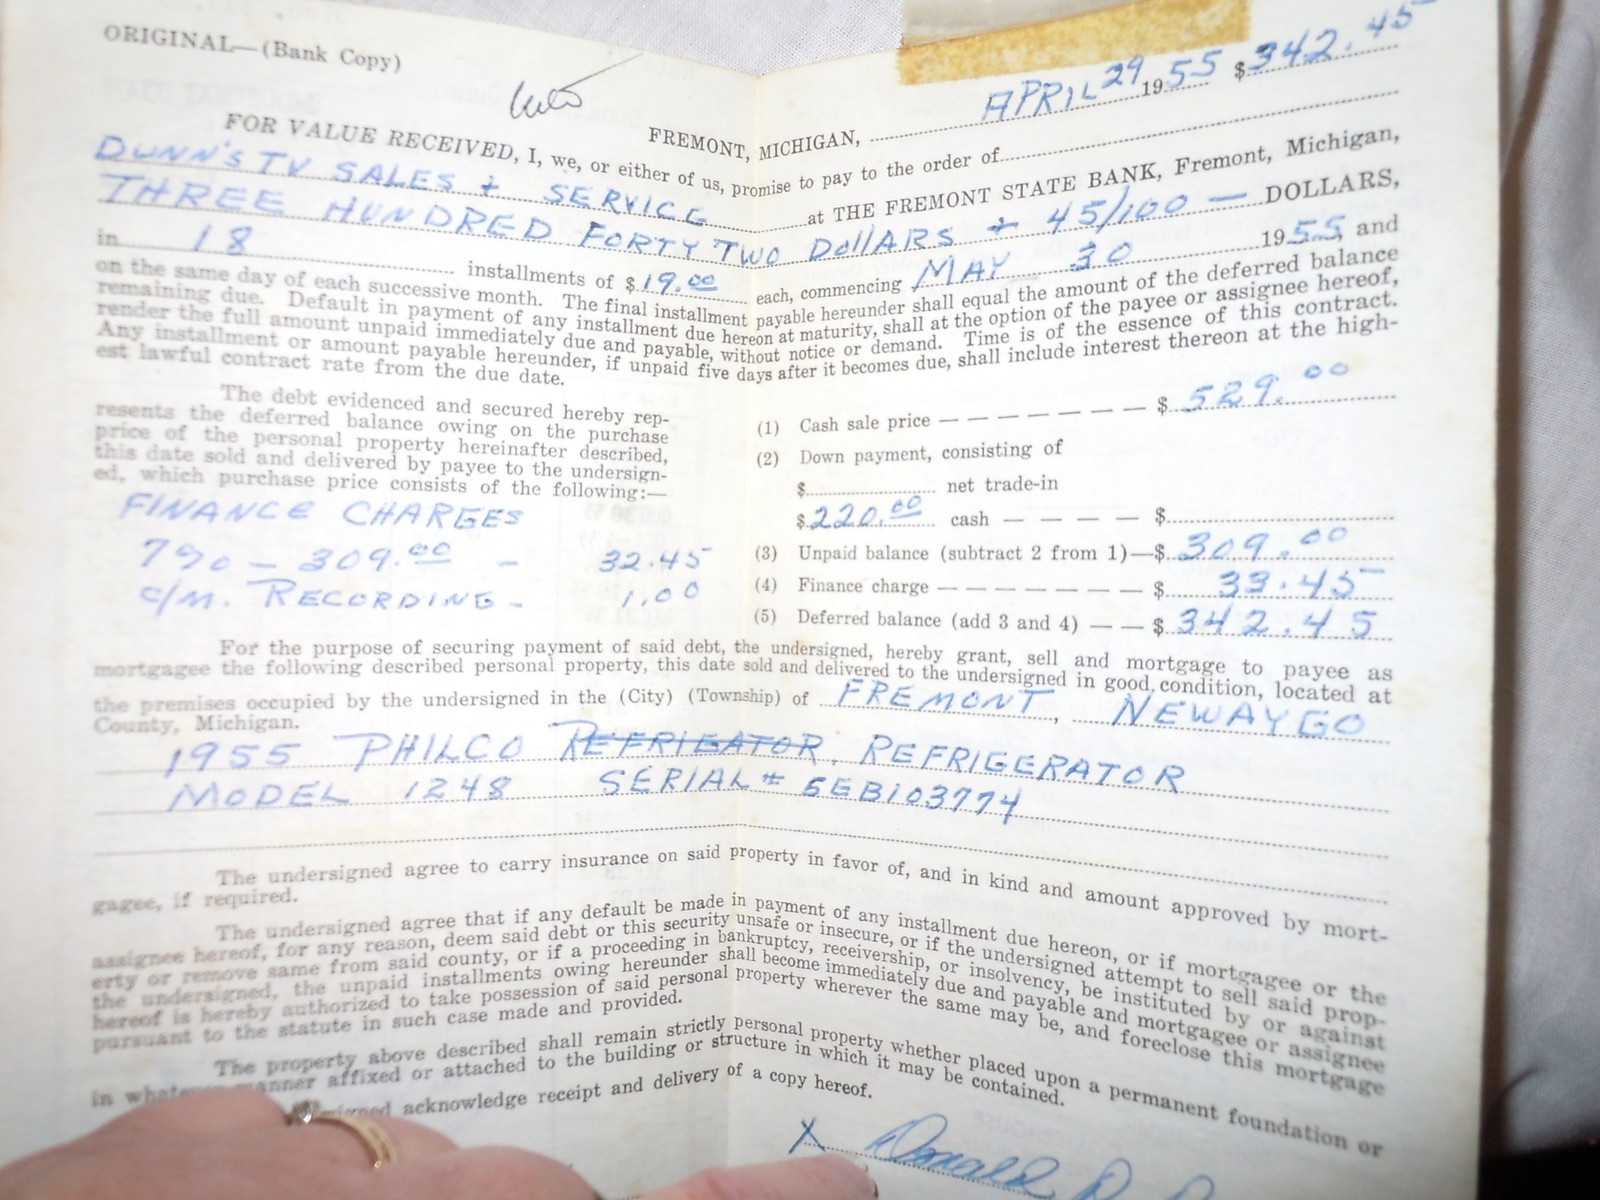 ORIGINAL—(Bank Copy)
FREMONT, MICHIGAN, APRIL 29 1955 $342.45
FOR VALUE RECEIVED, I, we, or either of us, promise to pay to the order of
DUNN'S TV SALES + SERVICE at THE FREMONT STATE BANK, Fremont, Michigan,
THREE HUNDRED FORTY TWO DOllARS + 45/100 — DOLLARS,
in 18 installments of $19.00 each, commencing MAY 30 1955, and
on the same day of each successive month. The final installment payable hereunder shall equal the amount of the deferred balance
remaining due. Default in payment of any installment due hereon at maturity, shall at the option of the payee or assignee hereof,
render the full amount unpaid immediately due and payable, without notice or demand. Time is of the essence of this contract.
Any installment or amount payable hereunder, if unpaid five days after it becomes due, shall include interest thereon at the high-
est lawful contract rate from the due date.
The debt evidenced and secured hereby rep-
resents the deferred balance owing on the purchase
price of the personal property hereinafter described,
this date sold and delivered by payee to the undersign-
ed, which purchase price consists of the following:—
FINANCE CHARGES
7% — 309.00 — 32.45
c/m. RECORDING — 1.00
(1) Cash sale price — — — — — — — $529.00
(2) Down payment, consisting of
$ net trade-in
$220.00 cash — — — — $
(3) Unpaid balance (subtract 2 from 1)—$309.00
(4) Finance charge — — — — — — — $33.45
(5) Deferred balance (add 3 and 4) — — $342.45
For the purpose of securing payment of said debt, the undersigned, hereby grant, sell and mortgage to payee as
mortgagee the following described personal property, this date sold and delivered to the undersigned in good condition, located at
the premises occupied by the undersigned in the (City) (Township) of FREMONT, NEWAYGO
County, Michigan.
1955 PHILCO REFRIGATOR, REFRIGERATOR
MODEL 1248 SERIAL # 5EB103774
The undersigned agree to carry insurance on said property in favor of, and in kind and amount approved by mort-
gagee, if required.
The undersigned agree that if any default be made in payment of any installment due hereon, or if mortgagee or the
assignee hereof, for any reason, deem said debt or this security unsafe or insecure, or if the undersigned attempt to sell said prop-
erty or remove same from said county, or if a proceeding in bankruptcy, receivership, or insolvency, be instituted by or against
the undersigned, the unpaid installments owing hereunder shall become immediately due and payable and mortgagee or assignee
hereof is hereby authorized to take possession of said personal property wherever the same may be, and foreclose this mortgage
pursuant to the statute in such case made and provided.
The property above described shall remain strictly personal property whether placed upon a permanent foundation or
in whatever manner affixed or attached to the building or structure in which it may be contained.
acknowledge receipt and delivery of a copy hereof.
X Donald